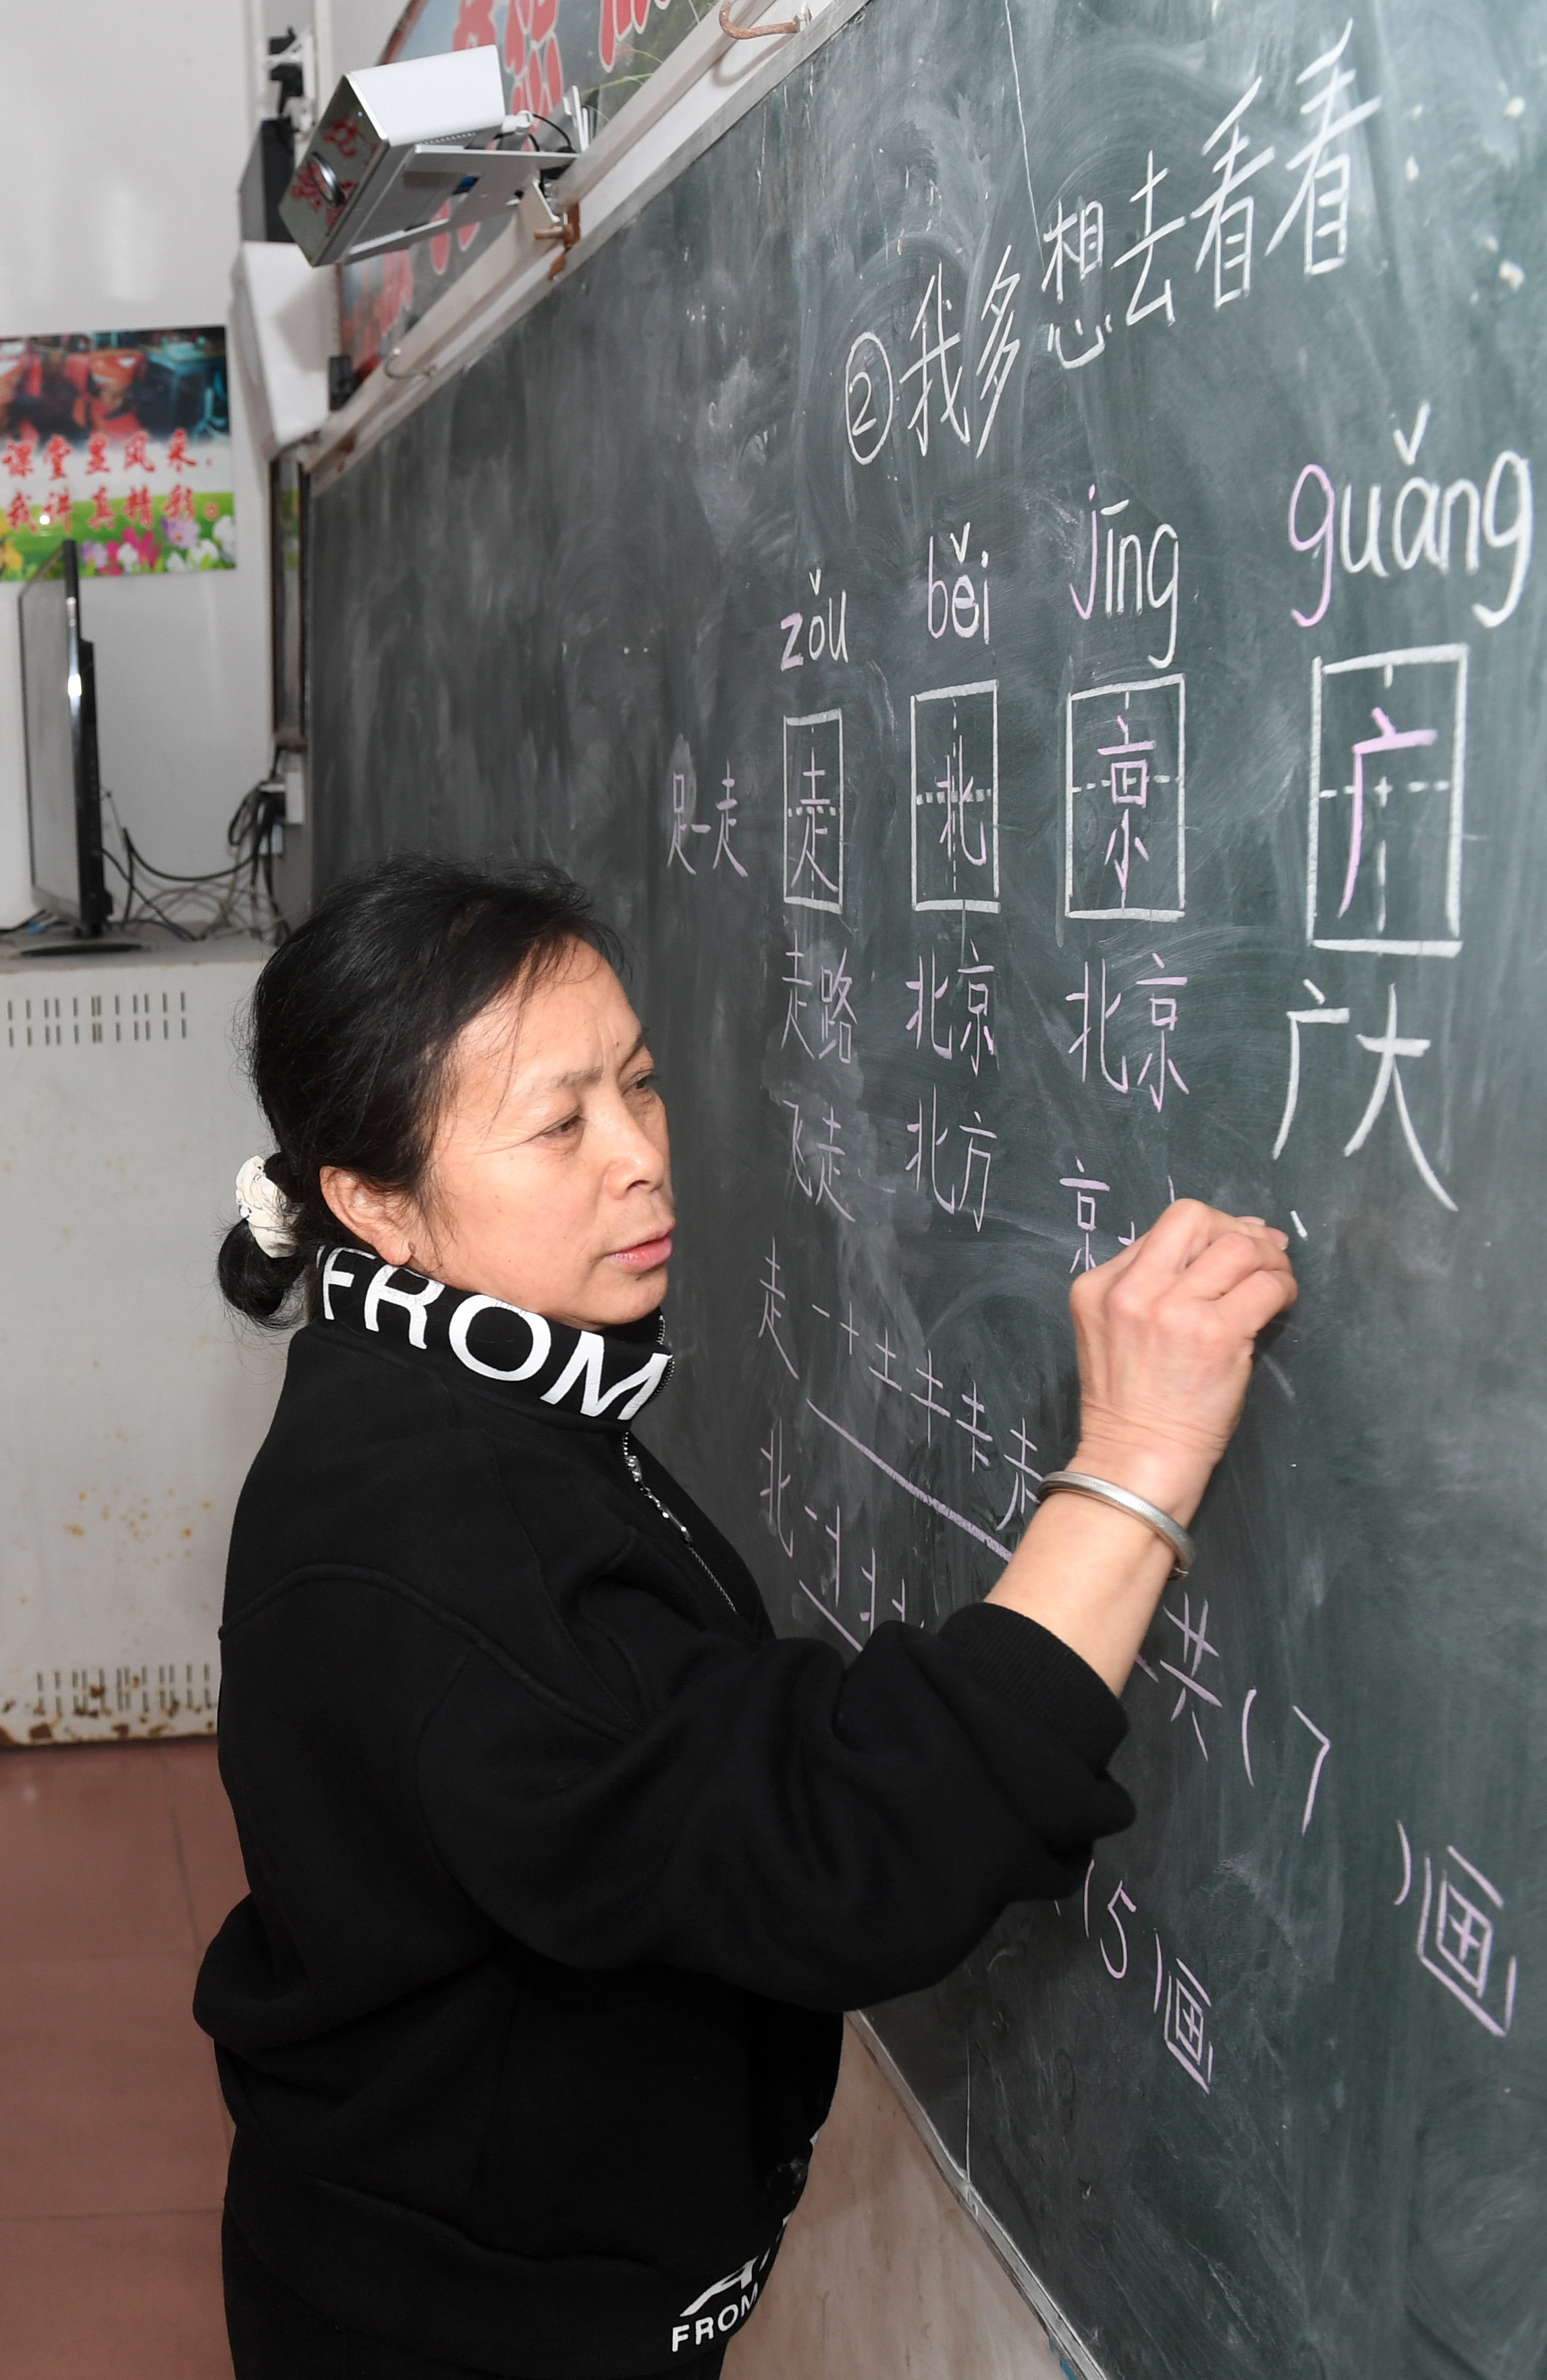 课堂显风采,
我讲真精彩。
②我多想去看看
zǒu běi jīng guǎng
足—走 走 北 京 广
走路 北京 北京 广大
飞走 北方 京
走 一 十 土
北
共( )
(5)画
)画
FROM
FROM